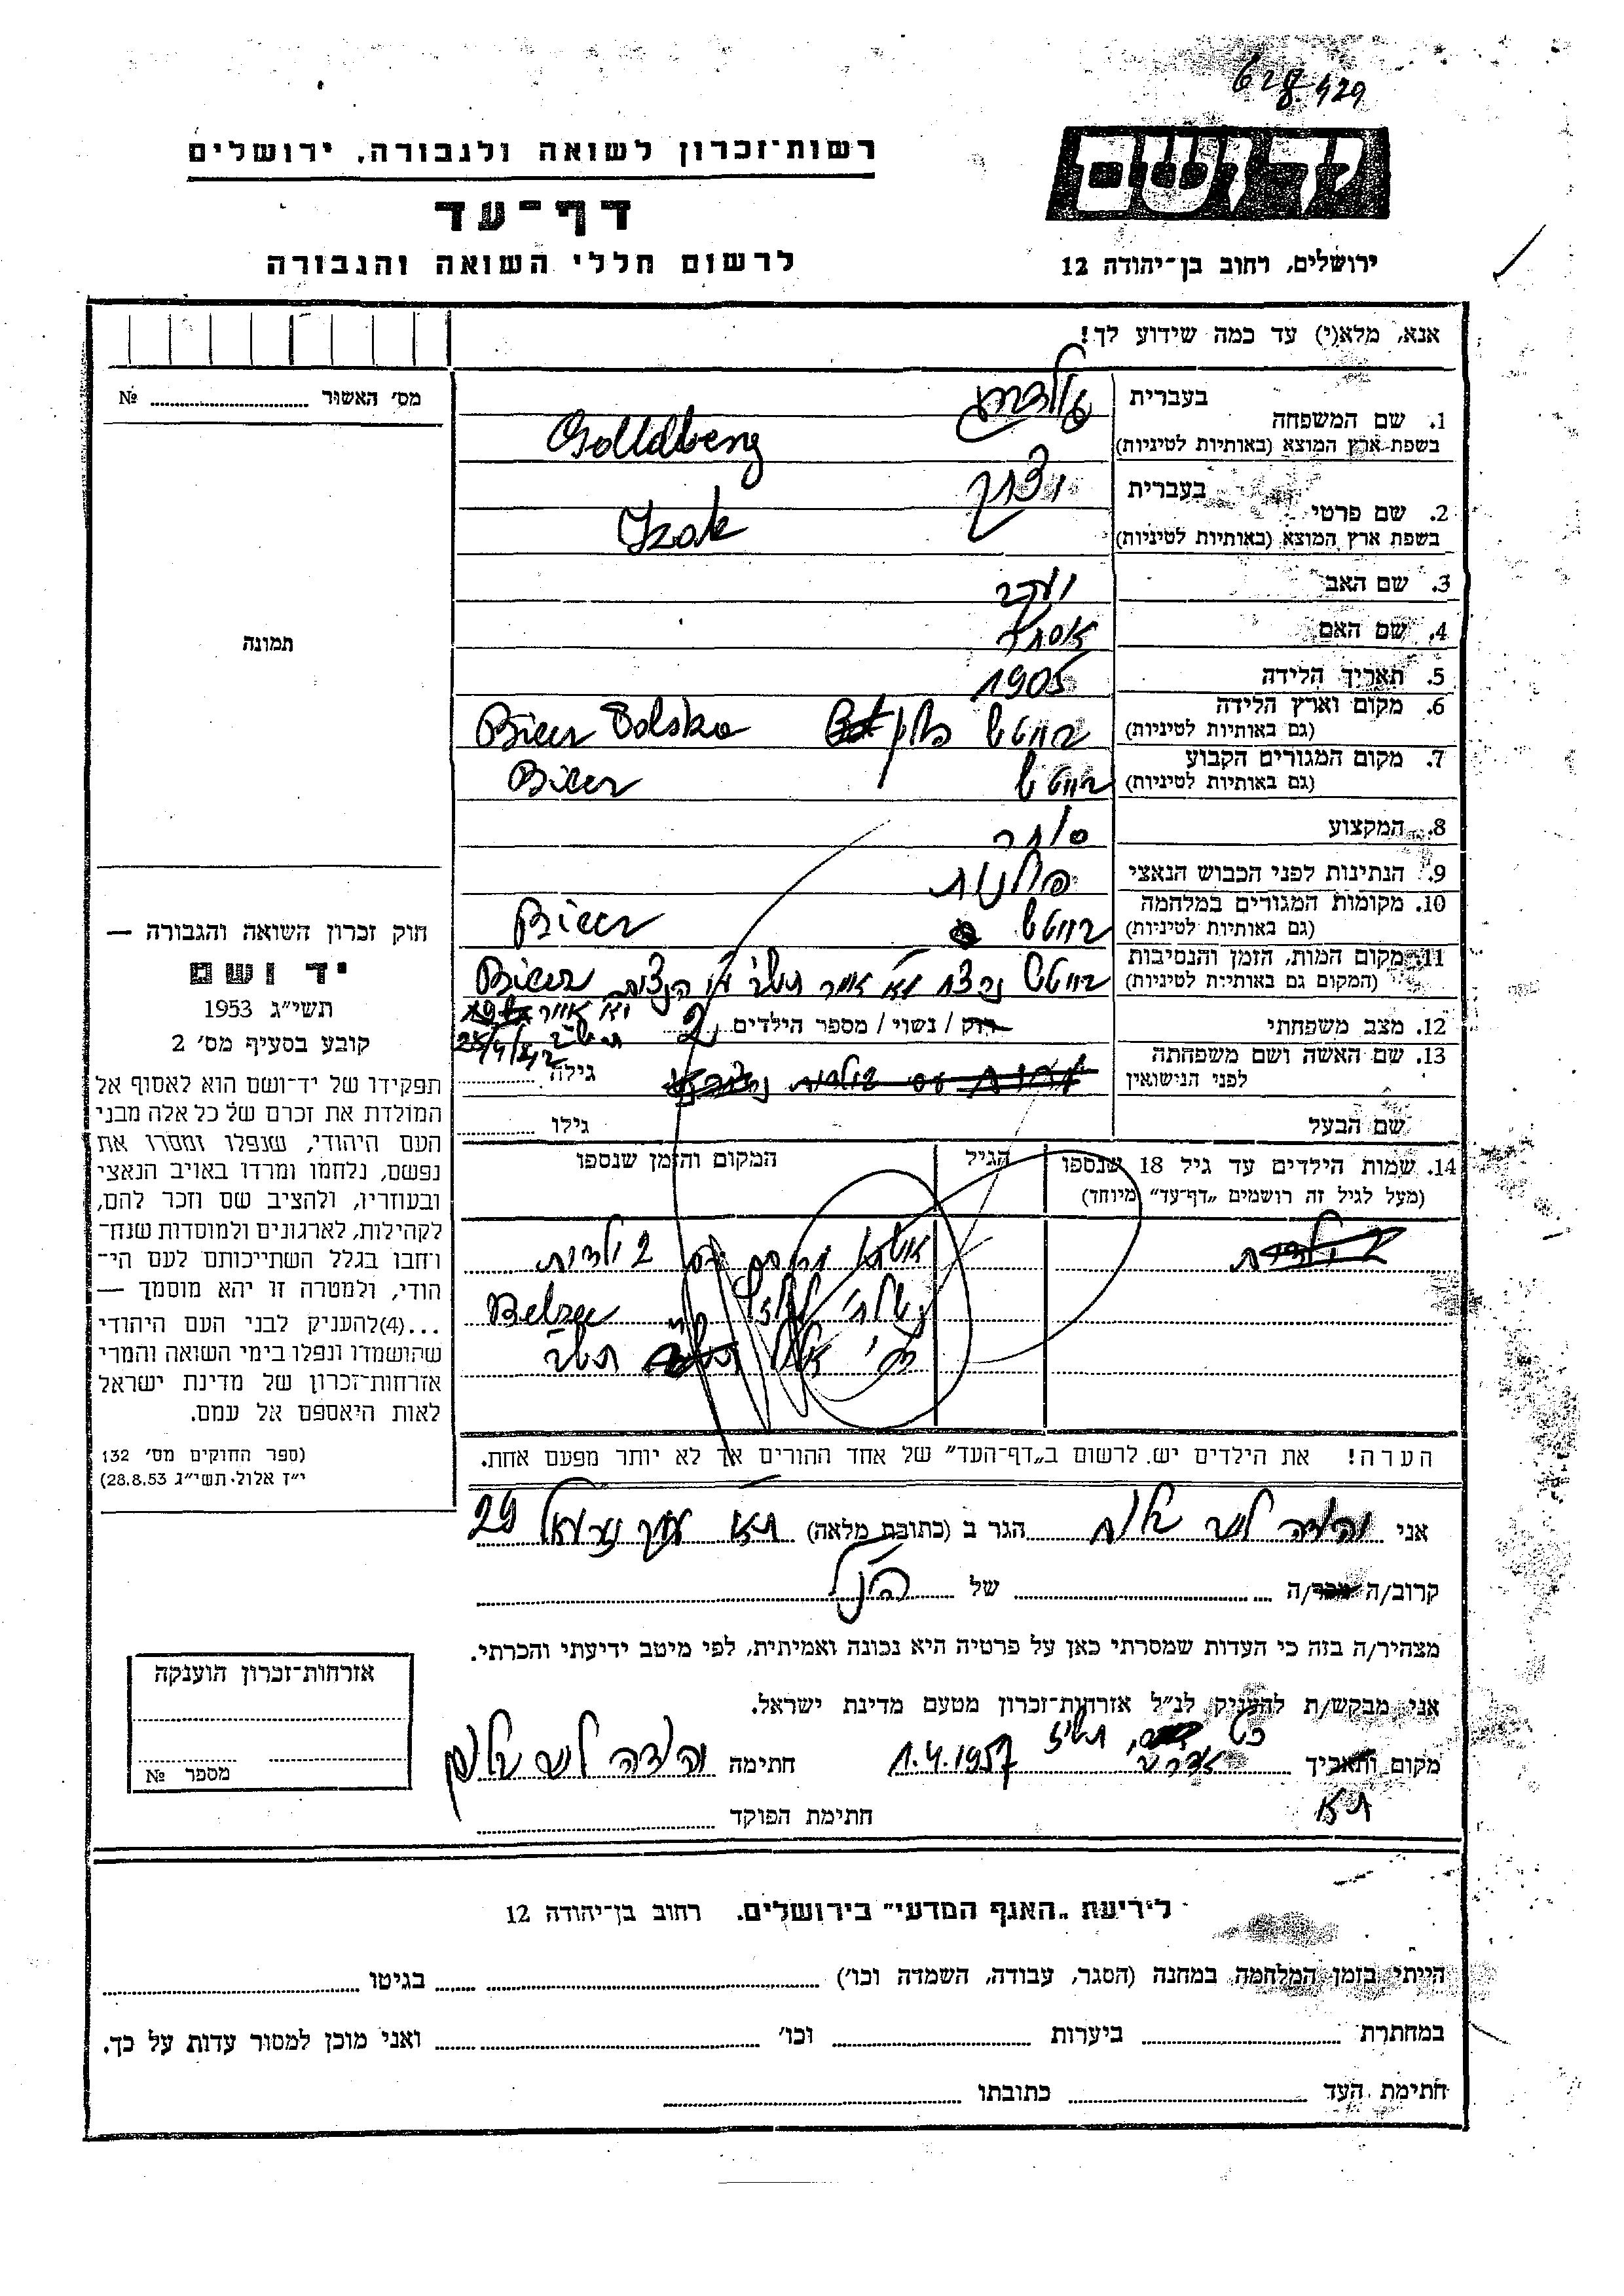 628 429
יד ושם
רשות־זכרון לשואה ולגבורה, ירושלים
דף־עד
ירושלים, רחוב בן־יהודה 12
לרשום חללי השואה והגבורה
אנא, מלא(י) עד כמה שידוע לך!
מס׳ האשור № 
תמונה
1. שם המשפחה
בעברית גולדברג
בשפת ארץ המוצא (באותיות לטיניות) Golldberg
2. שם פרטי
בעברית יצחק
בשפת ארץ המוצא (באותיות לטיניות) Izak
3. שם האב יעקב
4. שם האם אסתר
5. תאריך הלידה 1905
6. מקום וארץ הלידה
(גם באותיות לטיניות) Biecz Polska
7. מקום המגורים הקבוע
(גם באותיות לטיניות) Biecz
8. המקצוע סוחר
9. הנתינות לפני הכבוש הנאצי פולנית
10. מקומות המגורים במלחמה
(גם באותיות לטיניות) Biecz
11. מקום המות, הזמן והנסיבות
(המקום גם באותיות לטיניות) נרצח Biecz
12. מצב משפחתי רווק / נשוי / מספר הילדים 2
13. שם האשה ושם משפחתה
לפני הנישואין
גילה
שם הבעל
גילו
14. שמות הילדים עד גיל 18 שנספו
(מעל לגיל זה רושמים „דף־עד” מיוחד)
הגיל
המקום והזמן שנספו
2 ילדות
Belzec
הערה! את הילדים יש לרשום ב„דף־העד” של אחד ההורים אך לא יותר מפעם אחת.
חוק זכרון השואה והגבורה —
יד ושם
תשי״ג 1953
קובע בסעיף מס׳ 2
תפקידו של יד־ושם הוא לאסוף אל
המולדת את זכרם של כל אלה מבני
העם היהודי, שנפלו ומסרו את
נפשם, נלחמו ומרדו באויב הנאצי
ובעוזריו, ולהציב שם וזכר להם,
לקהילות, לארגונים ולמוסדות שנח־
רחבו בגלל השתייכותם לעם הי־
הודי, ולמטרה זו יהא מוסמך —
...(4)להעניק לבני העם היהודי
שהושמדו ונפלו בימי השואה והמרי
אזרחות־זכרון של מדינת ישראל
לאות היאספם אל עמם.
(ספר החוקים מס׳ 132
י״ז אלול תשי״ג 28.8.53)
אני יהודה הגר ב (כתובת מלאה) ת״א 29
קרוב/ה מכר/ה של הנ״ל
מצהיר/ה בזה כי העדות שמסרתי כאן על פרטיה היא נכונה ואמיתית, לפי מיטב ידיעתי והכרתי.
אני מבקש/ת להעניק לנ״ל אזרחות־זכרון מטעם מדינת ישראל.
מקום ותאריך 1.4.1957 חתימה יהודה
ת״א
חתימת הפוקד
אזרחות־זכרון הוענקה
מספר №
לידיעת „האגף המדעי” בירושלים. רחוב בן־יהודה 12
הייתי בזמן המלחמה במחנה (הסגר, עבודה, השמדה וכו׳) בגיטו
במחתרת ביערות וכו׳ ואני מוכן למסור עדות על כך.
חתימת העד כתובתו